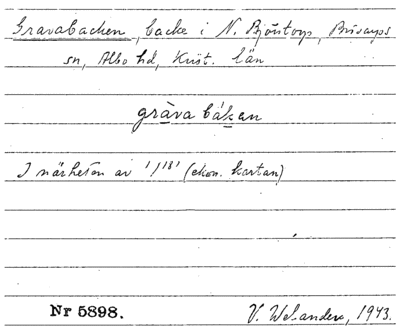 Gravabacken, backe i N. Björstorp, Brösarps
sn, Albo hd, Krist. län
gràva bákan
I närheten av '1/18' (ekon. kartan)
Nr 5898.
V. Welander, 1943.